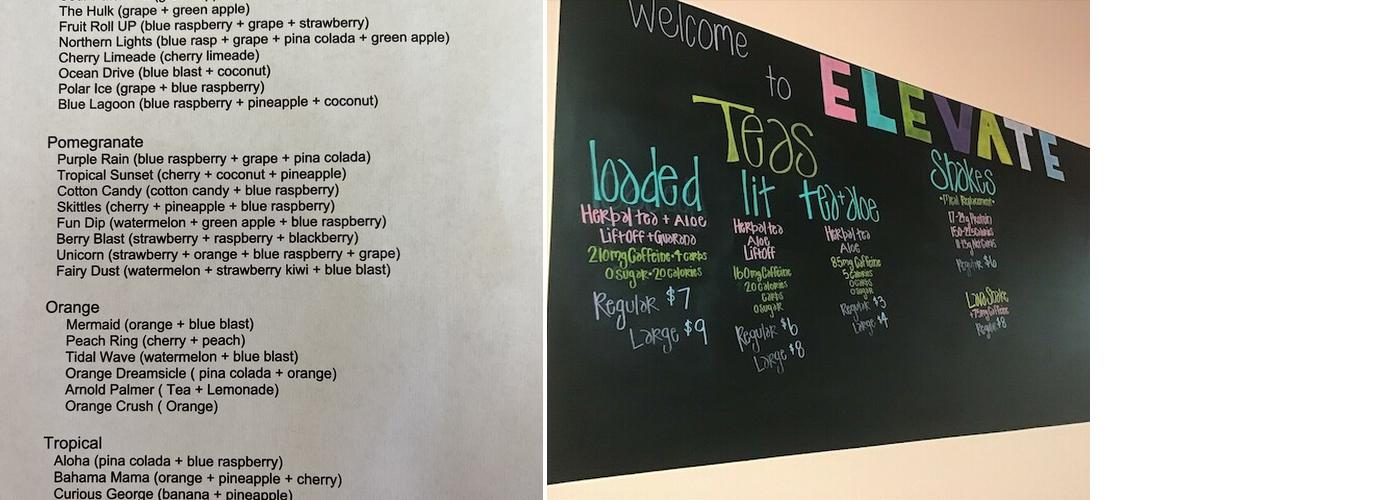 The Hulk (grape + green apple)
Fruit Roll UP (blue raspberry + grape + strawberry)
Northern Lights (blue rasp + grape + pina colada + green apple)
Cherry Limeade (cherry limeade)
Ocean Drive (blue blast + coconut)
Polar Ice (grape + blue raspberry)
Blue Lagoon (blue raspberry + pineapple + coconut)
Pomegranate
Purple Rain (blue raspberry + grape + pina colada)
Tropical Sunset (cherry + coconut + pineapple)
Cotton Candy (cotton candy + blue raspberry)
Skittles (cherry + pineapple + blue raspberry)
Fun Dip (watermelon + green apple + blue raspberry)
Berry Blast (strawberry + raspberry + blackberry)
Unicorn (strawberry + orange + blue raspberry + grape)
Fairy Dust (watermelon + strawberry kiwi + blue blast)
Orange
Mermaid (orange + blue blast)
Peach Ring (cherry + peach)
Tidal Wave (watermelon + blue blast)
Orange Dreamsicle ( pina colada + orange)
Arnold Palmer ( Tea + Lemonade)
Orange Crush ( Orange)
Tropical
Aloha (pina colada + blue raspberry)
Bahama Mama (orange + pineapple + cherry)
Curious George (banana + pineapple)
Welcome
to
ELEVATE
Teas
loaded
Herbal tea + Aloe
Liftoff + Guarana
210mg Caffeine • 4 carbs
0 Sugar • 20 Calories
Regular $7
Large $9
lit
Herbal tea
Aloe
Liftoff
160mg Caffeine
20 Calories
carbs
0 sugar
Regular $6
Large $8
tea + aloe
Herbal tea
Aloe
85mg Caffeine
5 Calories
0 carbs
0 sugar
Regular $3
Large $4
Shakes
• Meal Replacement •
Protein
Calories
Net Carbs
Regular $6
Shake
+75mg Caffeine
Regular $8